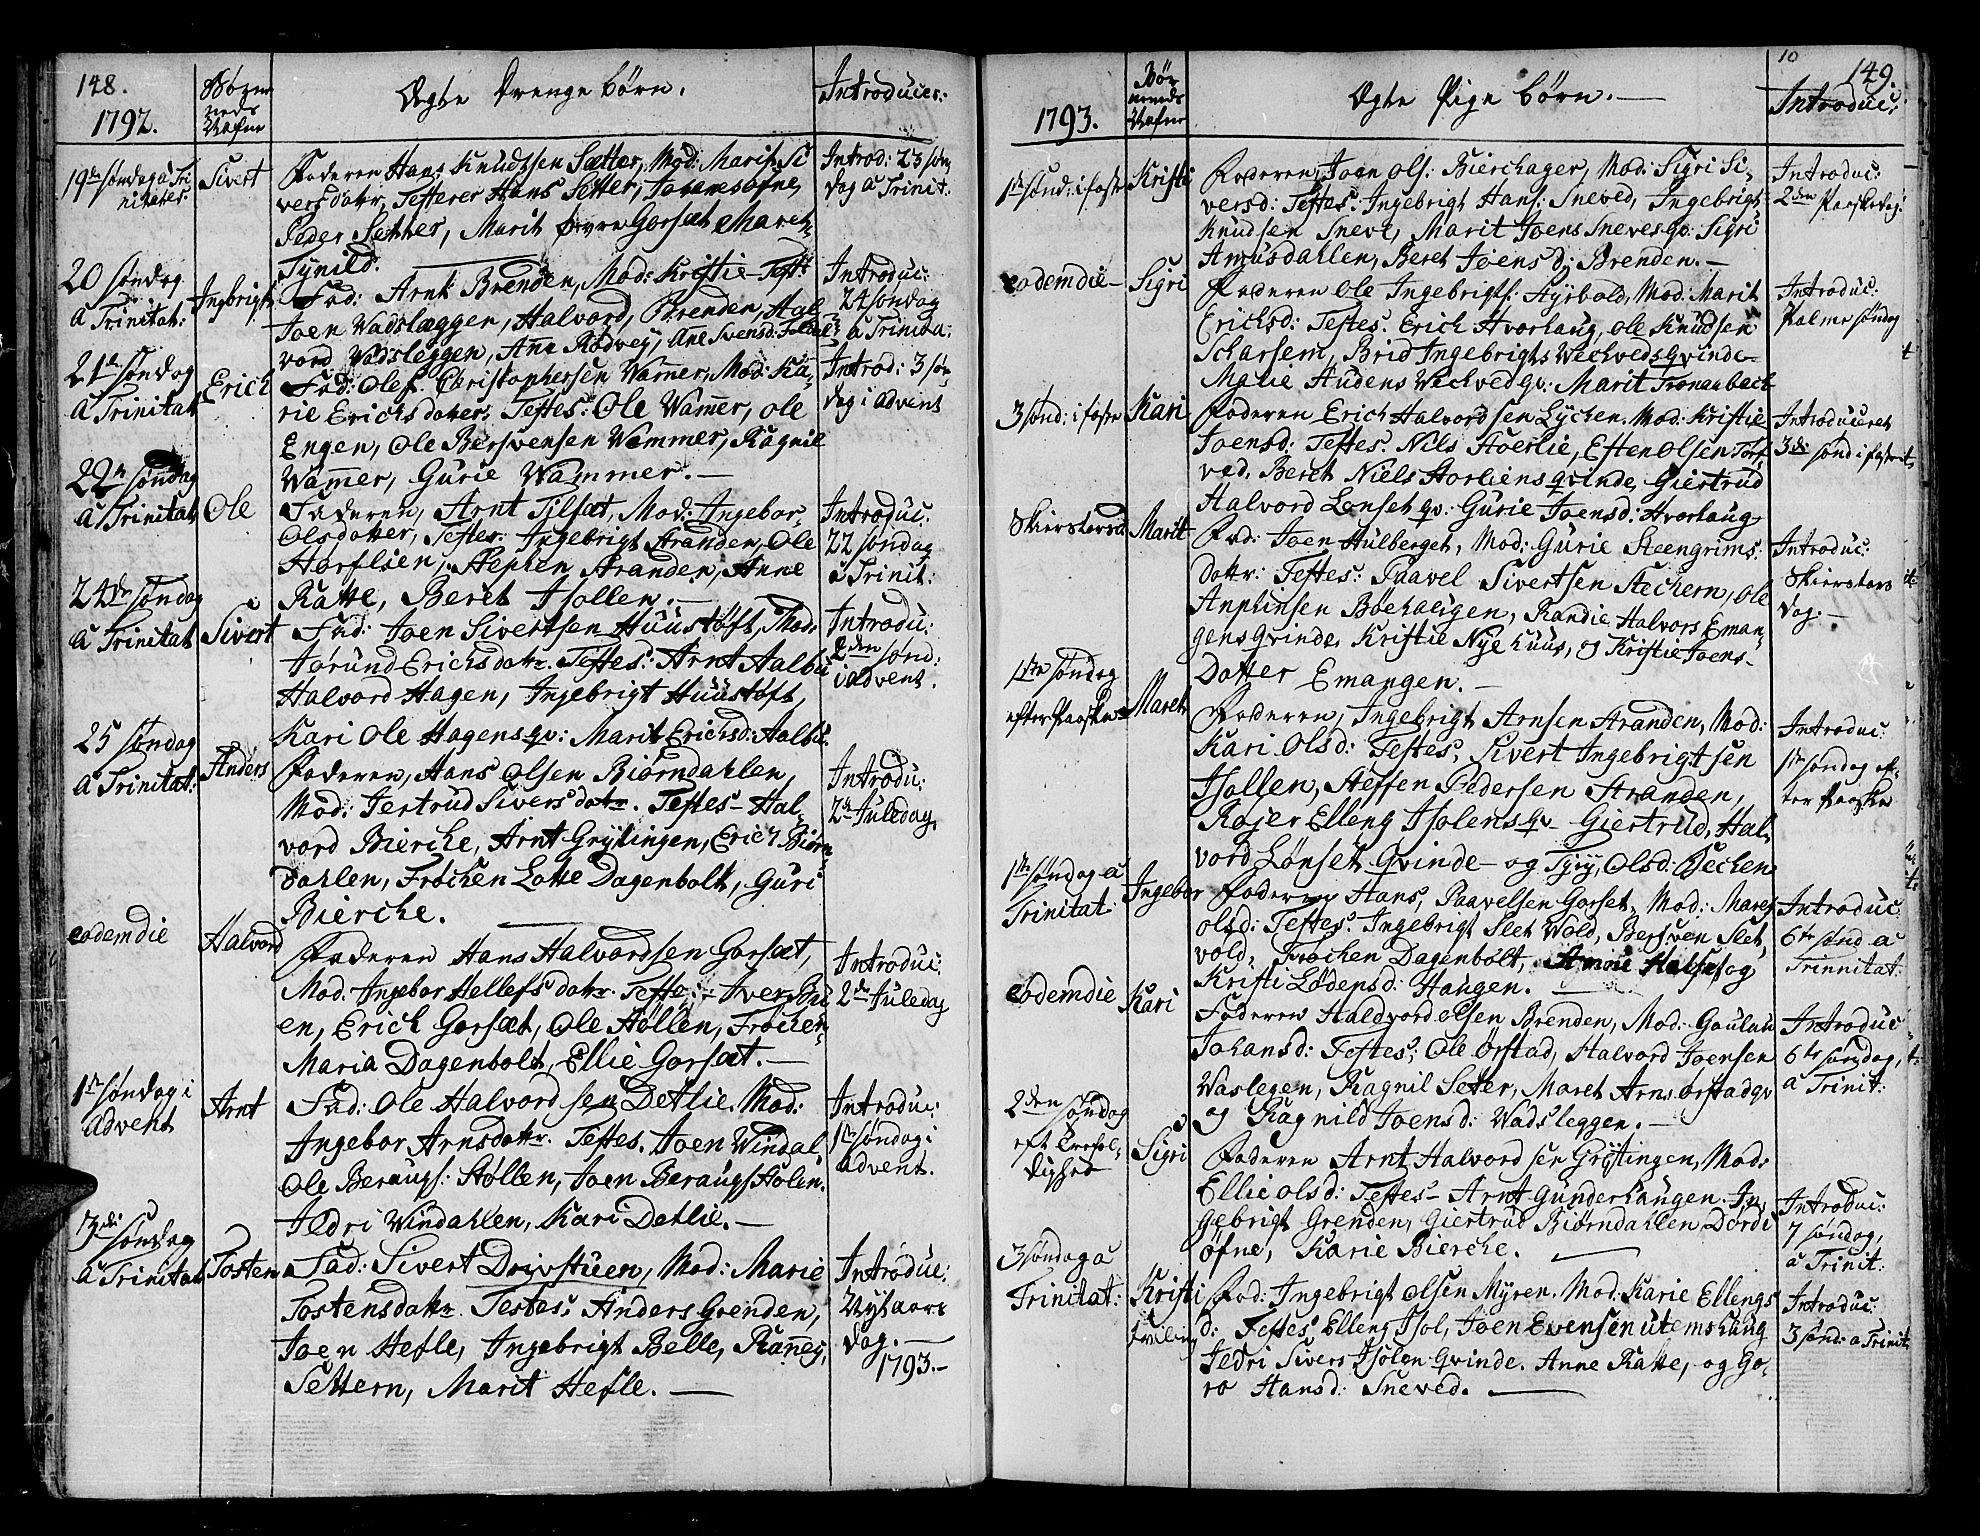 148.
1792.
Børne
neds
Nafne
Ægte Drenge børn.
Introduces:
19de søndag a Tri
nitates.
Sivert
Faderen Hans Knudtsen Sætter, Mod: Marit Si
versdatr, Testerer Hans Setter,
Peder Setter, Marit Øevre Gorsæt Maret
Tynild.
Introd: 23 søn
dag a Trinit:
20 søndag
a Trinitat:
Ingbrigt
Fad: Arnt Brenden, Mod: Kristie Test:
Joen Vadslæggen, Halvord, Brenden, Hal
vord Vadsleggen, Ane Rødvey, Ane Svensd:
Introduc:
24 søndag
a Trinita:
21de søndag
a Trinitat
Erich
Fad: Oles Christophersen Wamer, Mod: Ka-
rie Erichsdatter, Testes: Ole Wamer, ole
Engen, Ole Berswensen Wammer, Ragnie
Wamer, Gurie Wammer. —
Introd: 3 søn
dag i Advent
22de søndag
a Trinitat
Ole
Faderen, Arnt Tilset, Mod: Ingebor
Olsdatter, Testes: Ingebrigt Stranden, Ole
Stephen Stranden, Anne
Katte, Beret Isollen. —
Introduc:
22 søndag
a Trinit:
24de søndag
a Trinitat
Sivert
Fad: Joen Sivertsen Huustøft, Mod:
Jørund Erichsdatr. Testes: Arnt Aalbu
Halvord Hagen, Ingebrigt Huustøft,
Kari Ole Hagens qv: Marit Erichsd: Aalbu
Introdu:
2den sønd:
i advent.
25 søndag
a Trinitat:
Anders
Faderen, Hans Olsen Biørndahlen,
Mod: Jertrud Siversdatr. Testes — Hal-
vord Bierche, Arnt Grytingen, Erich Biørn
dahlen, Frøchen Lotte Dagenbolt, Guri
Bierche. —
Introdu:
2de Juledag.
eodemdie
Halvord
Faderen Hans Halvordsen Gorset,
Mod: Ingebor Hellefsdatr. Teste: Iver Bu
en, Erich Gorsæt, Ole Høllen, Frøchen
Maria Dagenbolt, Ellie Gorsæt. —
Introduc:
2de Juledag
1ste søndag i
Advent
Arnt
Fad: Ole Halvordsen Detlie. Mod:
Ingebor Arnsdatr. Testes. Joen Windal,
Ole Beraugs: Høllen, Joen Beraugs Holen.
Jldri Windahlen, Kari Detlie. —
Introduc:
1ste søndag i
Advent.
3die søndag
a Trinitat
Tosten
Fad: Sivert Drivstuen, Mod: Marie
Tostensdatr. Testes: Anders Grenden,
Joen Hefle, Ingebrigt Belle, Raneÿ,
Settern, Marit Hefle. —
Introduc:
Nytaars
dag. —
1793. —
10
149.
1793.
Bør
nenes
Nafne
Ægte Pige børn. —
Introduc:
1ste sønd: i faste
Kristi
Faderen, Joen Ols: Bierchager, Mod: Sigri Si-
versd: Testes. Ingebrigt Hans: Sneved, Ingebrigt
Knudsen Sneve, Marit Joens Sneves qv: Sigri
Amusdahlen, Beret Joensd: Brenden. —
Introduc:
2den Paaskedag:
eodemdie —
Sigri
Faderen Ole Ingebrigts: Hyrbold, Mod: Marit
Erichsd: Testes: Erich Hvorhaug, ole Knudsen
Scharsem, Brid Ingebrigts Wechveds Qvinde
Malie Audens Vechved qv: Marit Tronanbach
Introduc:
Palme søndag
3 sønd: i faste
Kari
Faderen Erich Halvordsen Lychen. Mod: Kristie
Joensd: Testes. Nils Hoerlie, Esten Olsen
ved. Beret Niels Horliens qvinde, Giertrud
Halvord Lonset qv: Gurie Joensd: Hvorhaug
Introduceret
3die sønd i faste
Skierstorsd
Marit
Fad: Joen Hulberget, Mod: Gurie Steengrims:
datr: Testes: Paavel Sivertsen Stechern, ole
Anphinsen Bøehaugen, Randie Halvors Eman-
gens qvinde, Kristie Nye huus, og Kristie Joens-
Datter Emangen. —
Introduc:
Skierstors
dag. —
1ste søndag
efter Paaske
Maret
Faderen, Ingebrigt Arnsen Stranden, Mod:
Kari Olsd: Testes, Sivert Ingebrigtsen
Isollen, Steffen Pedersen Stranden,
Rojer Elleng Isolens qv — Giertrud, Hal-
vord Lønset Qvinde — og Olsd: Sechen
Introduc:
1ste søndag ef-
ter Paaske
1ste søndag a
Trinitat:
Ingebor
Faderen Hans, Paavelsen Gorset, Mod: Maret
olsd: Testes. Ingebrigt Slet Wold, Berswen Slet
vold, Frøchen Dagenbolt, og
Kristi Lødensd: Haugen. —
Introduc
6te sønd a
Trinnitat:
eodemdie
Kari
Faderen Haldvord olsen Brenden, Mod: Goulau
Johansd: Testes; Ole Ørstad, Halvord Joensen
Waslegen, Ragnil Seter, Maret Arns ørstad qv
og Ragnild Joensd: Vadsleggen. —
Introduc
6te søndag,
a Trinit:
2den søndag
eft Trefol-
dighed
Sigri
Faderen Arnt Halvordsen Grøtingen, Mod:
Ellie olsd: Testes — Arnt Gunderhaugen. In-
gebrigt Grenden, Giertrud Biørndahlen Dordi
Øfne, Karie Bierche. —
Introduc:
7 søndag,
a Trinit:
3 søndag a
Trinitat:
Kristi
tvilling
Fad: Ingebrigt olsen Myren. Mod: Karie Ellengs
d: Testes, Elleng Isol, Joen Evensen utemshaug
Jldri Sivers Isolen Qvinde. Anne Katte, og Go-
ro Hansd: Sneved. —
Introduc:
3 sønd: a Trinit